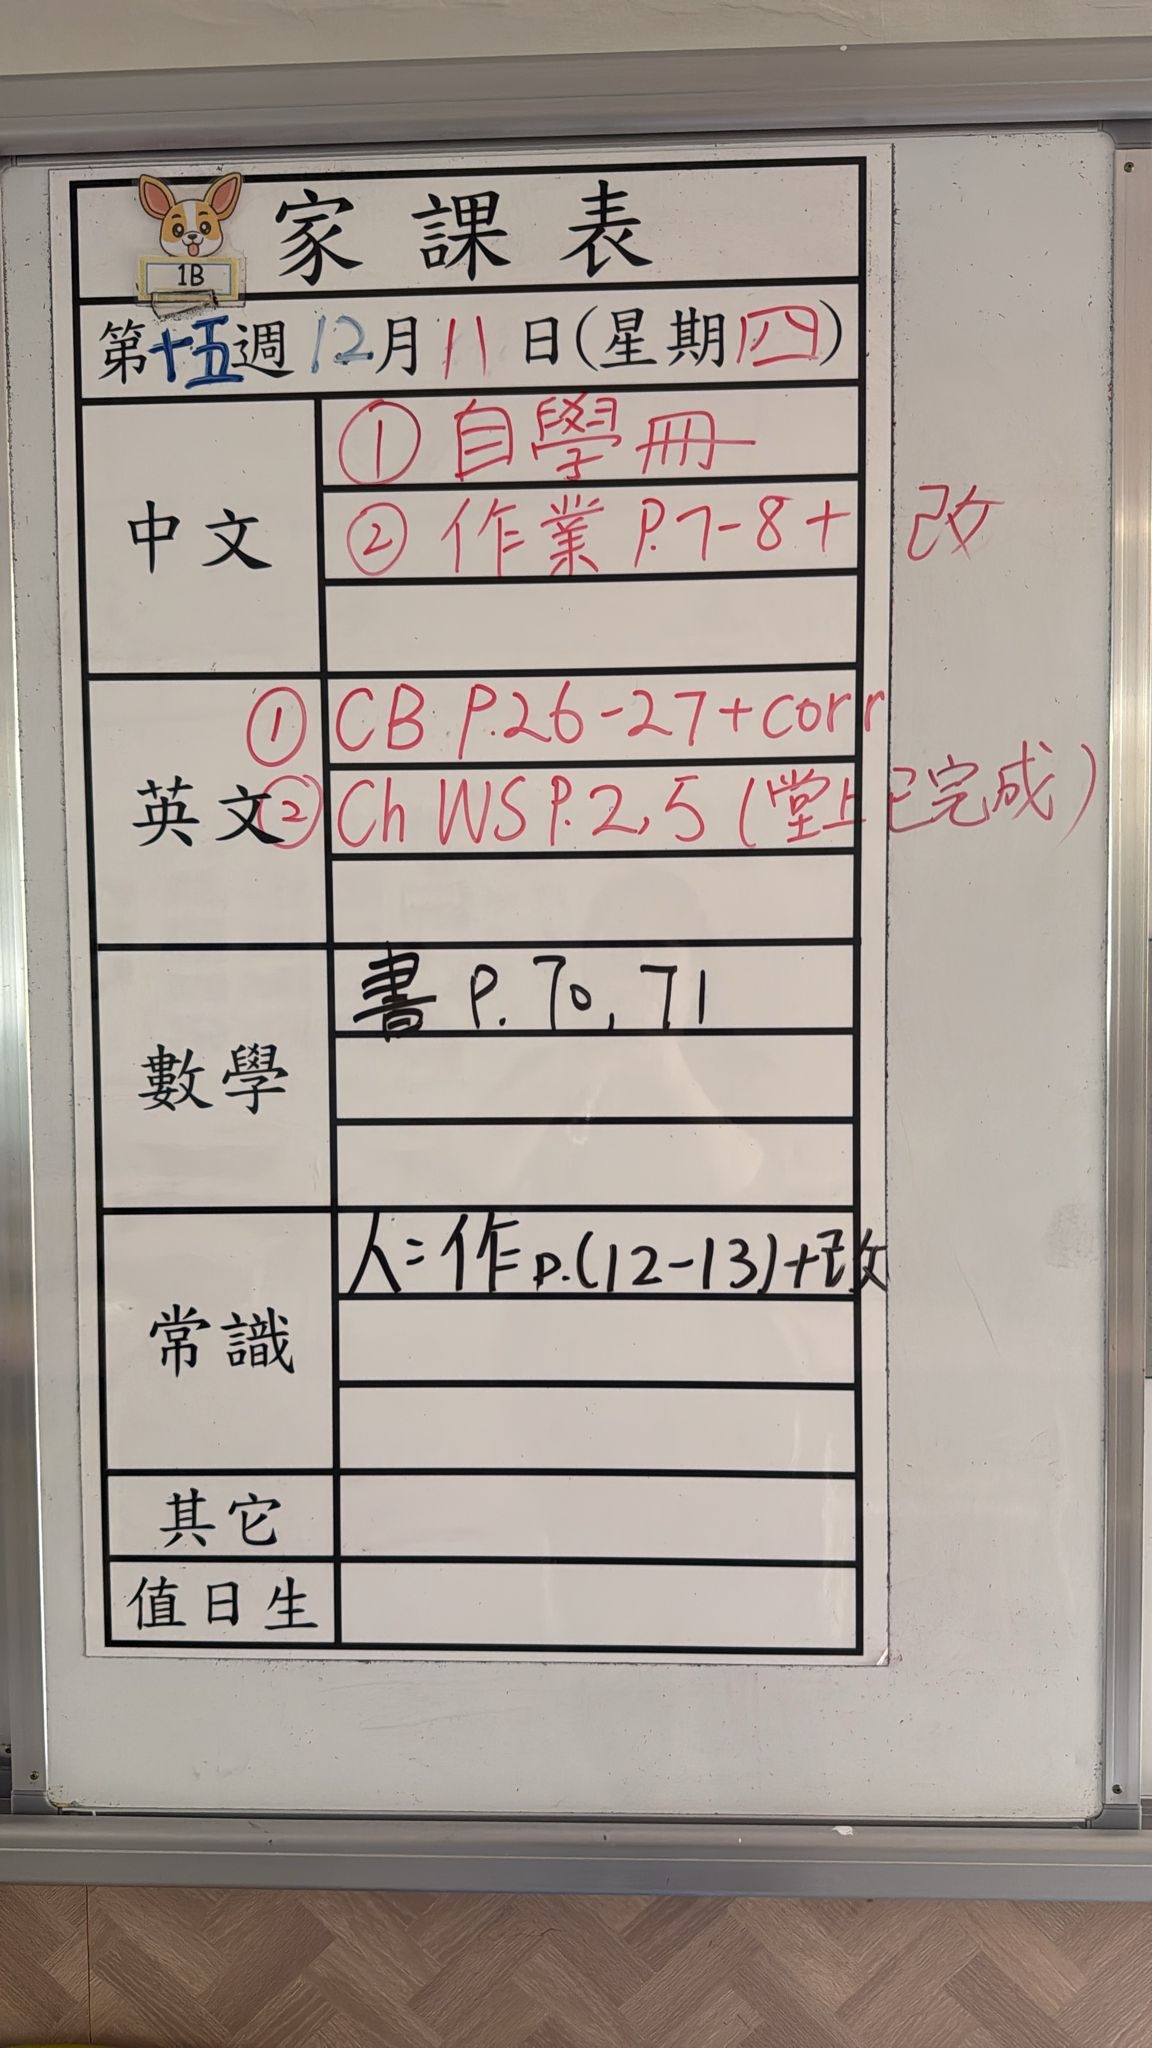 1B
家課表
第十五週 12月11日(星期四)
中文
① 自學冊
② 作業 P.7-8+改
英文
① CB P.26-27+corr
② Ch WS P.2,5 (堂上已完成)
數學
書 P.70,71
常識
人:作 p.(12-13)+改
其它
值日生